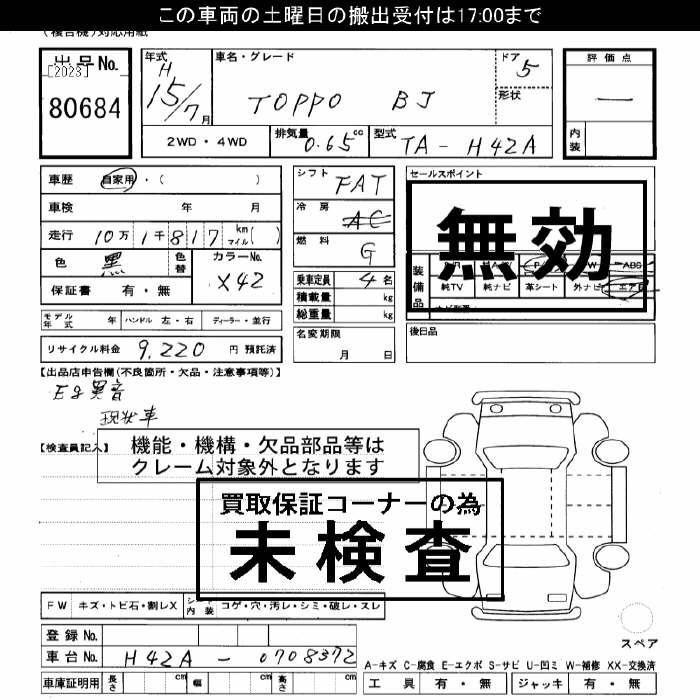 この車両の土曜日の搬出受付は17:00まで
(複合機)対応用紙
出品No.
[2023]
80684
年式
H
15/7月
車名・グレード
TOPPO BJ
ドア
5
形状
評価点
―
内装
2WD・4WD
排気量
0.65cc
型式
TA-H42A
車歴 自家用・( )
車検 年 月
走行 10万1千817 km マイル( )
色 黒 色替
カラーNo.
X42
保証書 有・無
シフト
FAT
冷房
AC
燃料
G
乗車定員 4名
積載量 kg
総重量 kg
セールスポイント
無効
装備品
純TV 純ナビ 革シート 外ナビ エアB
モデル年式 年 ハンドル 左・右 ディーラー・並行
名変期限
月 日
後日品
リサイクル料金 9,220 円 預託済
【出品店申告欄(不良箇所・欠品・注意事項等)】
Eg異音
現状車
【検査員記入】
機能・機構・欠品部品等は
クレーム対象外となります
買取保証コーナーの為
未検査
FW キズ・トビ石・割レX シート内装 コゲ・穴・汚レ・シミ・破レ・スレ
登録No.
車台No. H42A-0708372
車庫証明用 長さ cm 幅 cm 高さ cm
スペア
A-キズ C-腐食 E-エクボ S-サビ U-凹ミ W-補修 XX-交換済
工具 有・無 ジャッキ 有・無